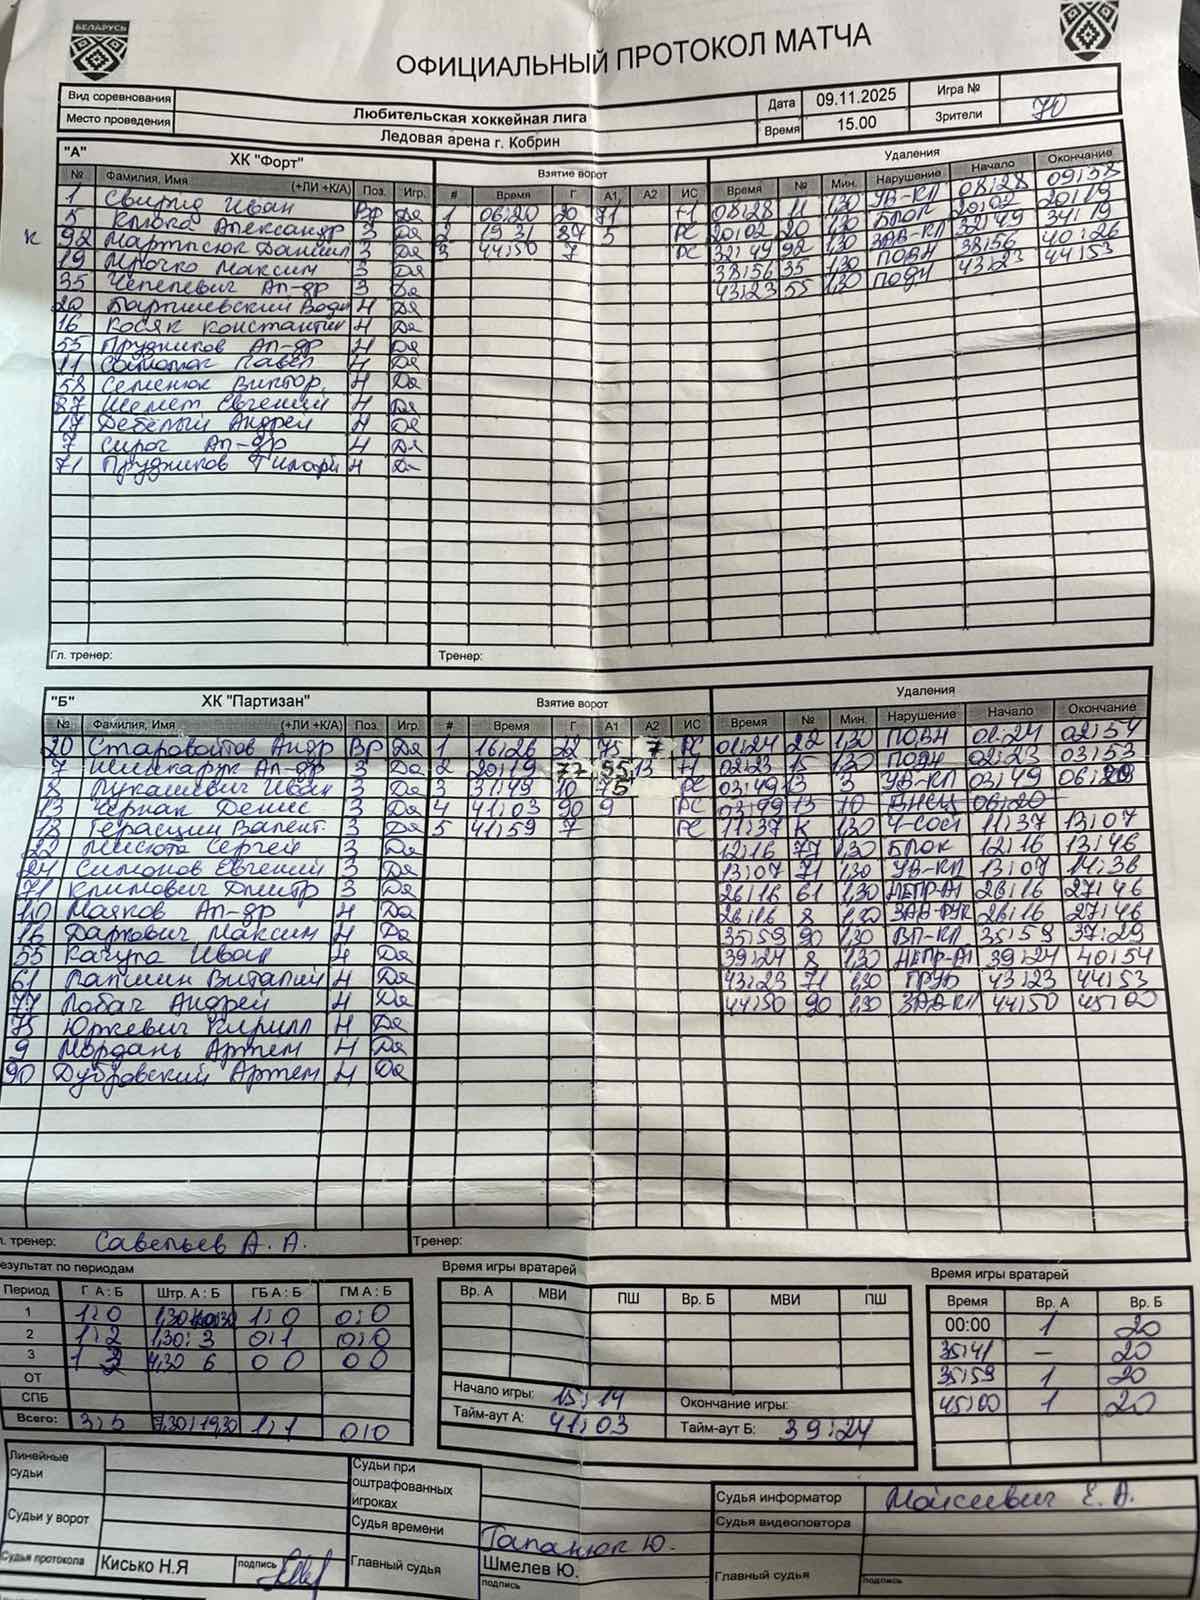 БЕЛАРУСЬ
ОФИЦИАЛЬНЫЙ ПРОТОКОЛ МАТЧА
Вид соревнования Любительская хоккейная лига Дата 09.11.2025 Игра №
Место проведения Ледовая арена г. Кобрин Время 15.00 Зрители 70
"А" ХК "Форт" Взятие ворот Удаления
№ Фамилия, Имя (+ЛИ +К/А) Поз. Игр. # Время Г А1 А2 ИС Время № Мин. Нарушение Начало Окончание
1 Свирид Иван Вр Да 1 06:20 20 71 +1 08:28 11 1,30 УВ-КЛ 08:28 09:58
5 Клюка Александр З Да 2 19 31 87 5 РС 20:02 20 1,30 БЛОК 20:02 20:19
К 92 Мартысюк Даниил З Да 3 44:50 7 РС 32:49 92 1,30 ЗАВ-КЛ 32:49 34:19
19 Мрочко Максим З Да 38:56 35 1,30 ПОВН 38:56 40:26
35 Чепелевич Ал-др З Да 43:23 55 1,30 ПОДН 43:23 44:53
20 Бартишевский Вади Н Да
16 Косяк Константин Н Да
55 Прудников Ал-др Н Да
11 Павел Н Да
58 Семенюк Виктор Н Да
87 Шемет Евгений Н Да
17 Дебелый Андрей Н Да
7 Сирош Ал-др Н Да
71 Прудников Н Да
Гл. тренер: Тренер:
"Б" ХК "Партизан" Взятие ворот Удаления
№ Фамилия, Имя (+ЛИ +К/А) Поз. Игр. # Время Г А1 А2 ИС Время № Мин. Нарушение Начало Окончание
20 Старовойтов Андр ВР Да 1 16:26 22 75 7 РС 01:24 22 1,30 ПОВН 01:24 02:54
7 Шинкарук Ал-др З Да 2 20:19 77 55 13 +1 02:23 15 1,30 ПОДН 02:23 03:53
8 Лукашевич Иван З Да 3 31:49 10 75 РС 03:49 13 3 УВ-КЛ 03:49 06:20
13 Черпак Денис З Да 4 41:03 90 9 РС 03:49 13 10 06:20
18 Герасции Валент. З Да 5 41:59 7 РС 11:37 К 1,30 Ч-СОСТ 11:37 13:07
22 Мисюта Сергей З Да 12:16 77 1,30 БЛОК 12:16 13:46
24 Симонов Евгений З Да 13:07 71 1,30 УВ-КЛ 13:07 14:36
71 Климович Дмитр З Да 26:16 61 1,30 НЕПР-АТ 26:16 27:46
10 Маяков Ал-др Н Да 26:16 8 1,30 ЗАВ-РУК 26:16 27:46
16 Даркович Максим Н Да 35:59 90 1,30 ВП-КЛ 35:59 37:29
55 Качула Иван Н Да 39:24 8 1,30 НЕПР-АТ 39:24 40:54
61 Лапшин Виталий Н Да 43:23 71 1,30 ГРУБ 43:23 44:53
77 Лобач Андрей Н Да 44:50 90 1,30 ЗАВ-КЛ 44:50 45:00
75 Юркевич Кирилл Н Да
9 Мордань Артем Н Да
90 Дубровский Артем Н Да
л. тренер: Савельев А. А. Тренер:
езультат по периодам Время игры вратарей Время игры вратарей
Период Г А : Б Штр. А : Б ГБ А : Б ГМ А : Б Вр. А МВИ ПШ Вр. Б МВИ ПШ Время Вр. А Вр. Б
1 1:0 1,30 1:0 0:0 00:00 1 20
2 1:2 1,30:3 0:1 0:0 35:41 — 20
3 1 3 4,30 6 0 0 0 0 35:59 1 20
ОТ 45:00 1 20
СПБ Начало игры: 15:14 Окончание игры:
Всего: 3:5 7,30:19,30 1:1 0:0 Тайм-аут А: 41:03 Тайм-аут Б: 39:24
Линейные судьи Судьи при оштрафованных игроках Судья информатор Мойсиевич Е. А.
Судьи у ворот Судья времени Гапанюк Ю. Судья видеоповтора
Судья протокола Кисько Н.Я подпись Главный судья Шмелев Ю. подпись Главный судья подпись